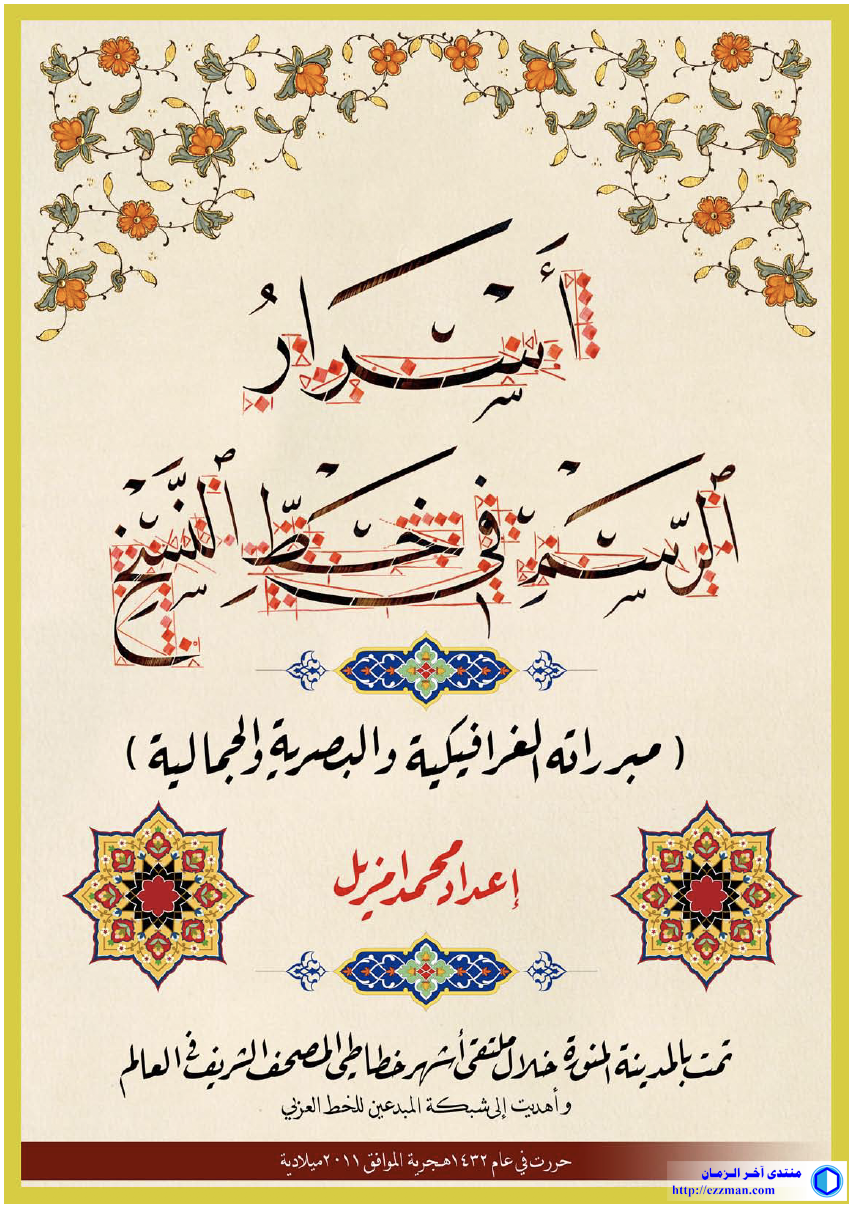 أَسْرَارُ
ٱلرَّسْمِ فِي خَطِّ ٱلنَّسْخِ
( مبرراته الغرافيكية والبصرية والجمالية )
إعداد محمد امزيل
تمت بالمدينة المنورة خلال ملتقى أشهر خطاطي المصحف الشريف في العالم
وأهديت إلى شبكة المبدعين للخط العربي
حررت في عام ١٤٣٢هجرية الموافق ٢٠١١ميلادية
منتدى آخر الزمان
http://ezzman.com